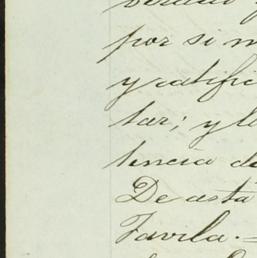 por si m
y ratific
tar; y lo
tencia de
De asta
Favila.=